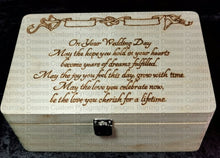 On Your Wedding Day
May the hope you hold in your hearts
become years of dreams fulfilled.
May the joy you feel this day grow with time.
May the love you celebrate now,
be the love you cherish for a lifetime.